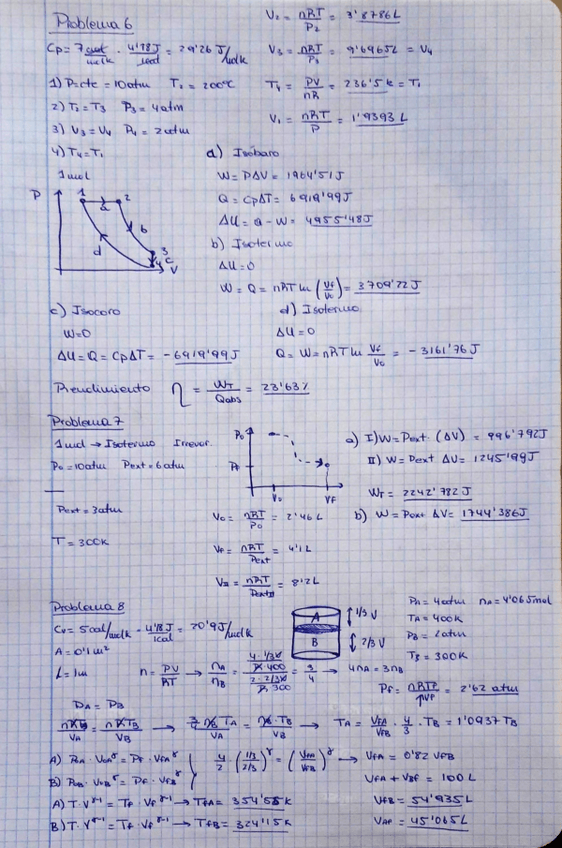 Problema 6
Cp = 7 cal/molk · 4'18J/1cal = 29'26 J/molk
1) P₁cte = 10atm T₁ = 200ºC
2) T₂ = T₃ P₃ = 4atm
3) V₃ = V₄ P₄ = 2atm
4) T₄ = T₁
1mol
V₂ = nRT/P₂ = 3'8786L
V₃ = nRT/P₃ = 9'6965L = V₄
T₄ = PV/nR = 236'5k = T₁
V₁ = nRT/P = 1'9393L
P 1 2 a b 3 c 4 d V
a) Isóbaro
W = PΔV = 1964'51J
Q = CpΔT = 6919'99J
ΔU = Q - W = 4955'48J
b) Isotermo
ΔU = 0
W = Q = nRT ln (Vf/V₀) = 3709'22J
c) Isocoro
W = 0
ΔU = Q = CpΔT = -6919'99J
d) Isotermo
ΔU = 0
Q = W = nRT ln Vf/V₀ = -3161'76J
Rendimiento η = WT/Qabs = 23'63%
Problema 7
1mol → Isotermo Irrever.
P₀ = 10atm Pext = 6atm
Pext = 3atm
T = 300K
P₀ V₀ VF
V₀ = nRT/P₀ = 2'46L
Vf = nRT/Pext = 4'1L
VII = nRT/PextII = 8'2L
a) I) W = Pext (ΔV) = 996'792J
II) W = Pext ΔV = 1245'99J
WT = 2242'782J
b) W = Pext ΔV = 1744'386J
Problema 8
Cv = 5cal/molk · 4'18J/1cal = 20'9J/molk
A = 0'1m²
L = 1m
A 1/3 V
B 2/3 V
PA = 4atm nA = 4'065mol
TA = 400K
PB = 2atm
TB = 300K
n = PV/RT → nA/nB = = 3/4 → 4nA = 3nB
Pf = = 2'62 atm
PA = PB
nRTA/VA = nRTB/VB → 3/4 nB TA/VA = nB · TB/VB → TA = VFA/VFB · 4/3 · TB = 1'0937 TB
A) P₀A · V₀A^γ = Pf · VfA^γ
B) P₀B · V₀B^γ = Pf · VfB^γ
4/2 · (1/3/2/3)^γ = (VfA/VfB)^γ → VfA = 0'82 VFB
VFA + VBF = 100L
A) T·V^γ-1 = Tf · Vf^γ-1 → TfA = 354'55K
VFB = 54'935L
B) T·V^γ-1 = Tf · Vf^γ-1 → TfB = 324'15K
VAF = 45'065L